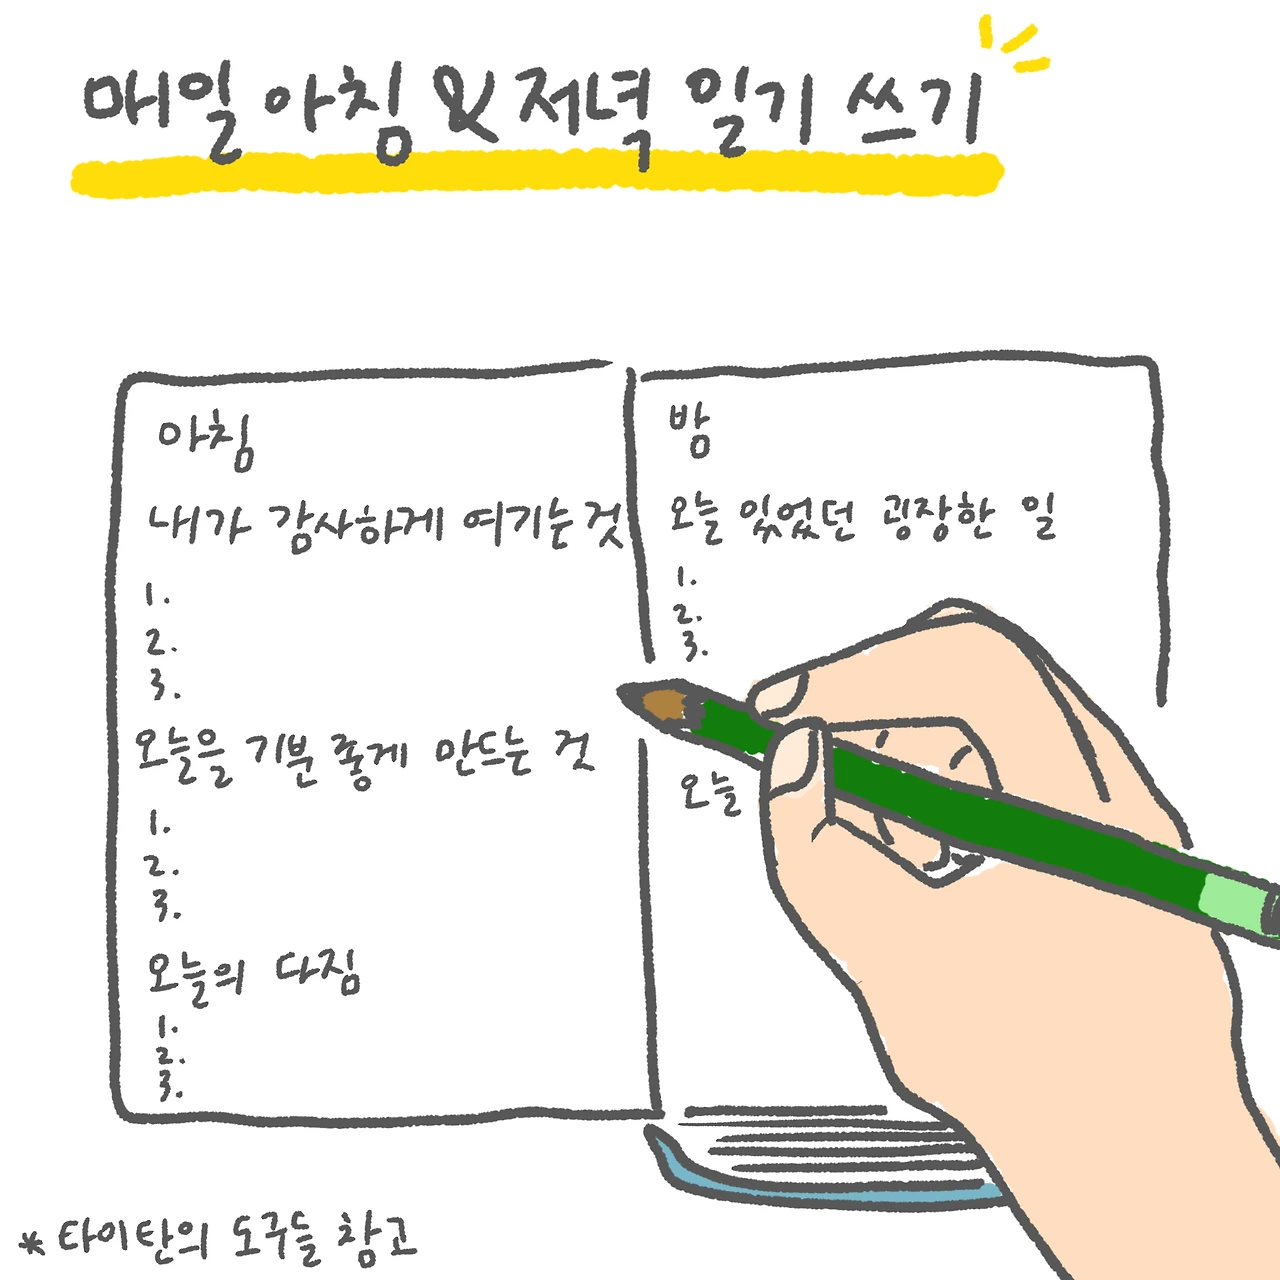 매일 아침 & 저녁 일기 쓰기
아침
내가 감사하게 여기는 것
1.
2.
3.
오늘을 기분 좋게 만드는 것
1.
2.
3.
오늘의 다짐
1.
2.
3.
밤
오늘 있었던 굉장한 일
1.
2.
3.
오늘
* 타이탄의 도구들 참고